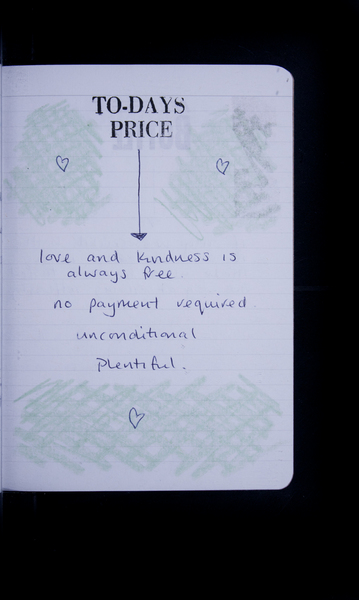 TO-DAYS
PRICE
love and kindness is
always free.
no payment required.
unconditional
plentiful.